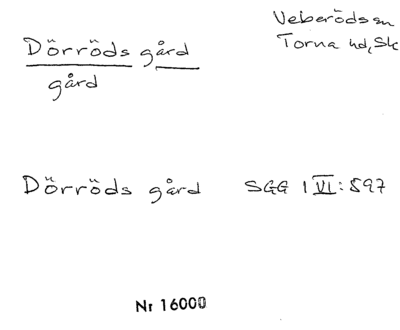 Dörröds gård
gård
Veberöds sn
Torna hd, Sk
Dörröds gård SGG 1 VI: 597
Nr 16000